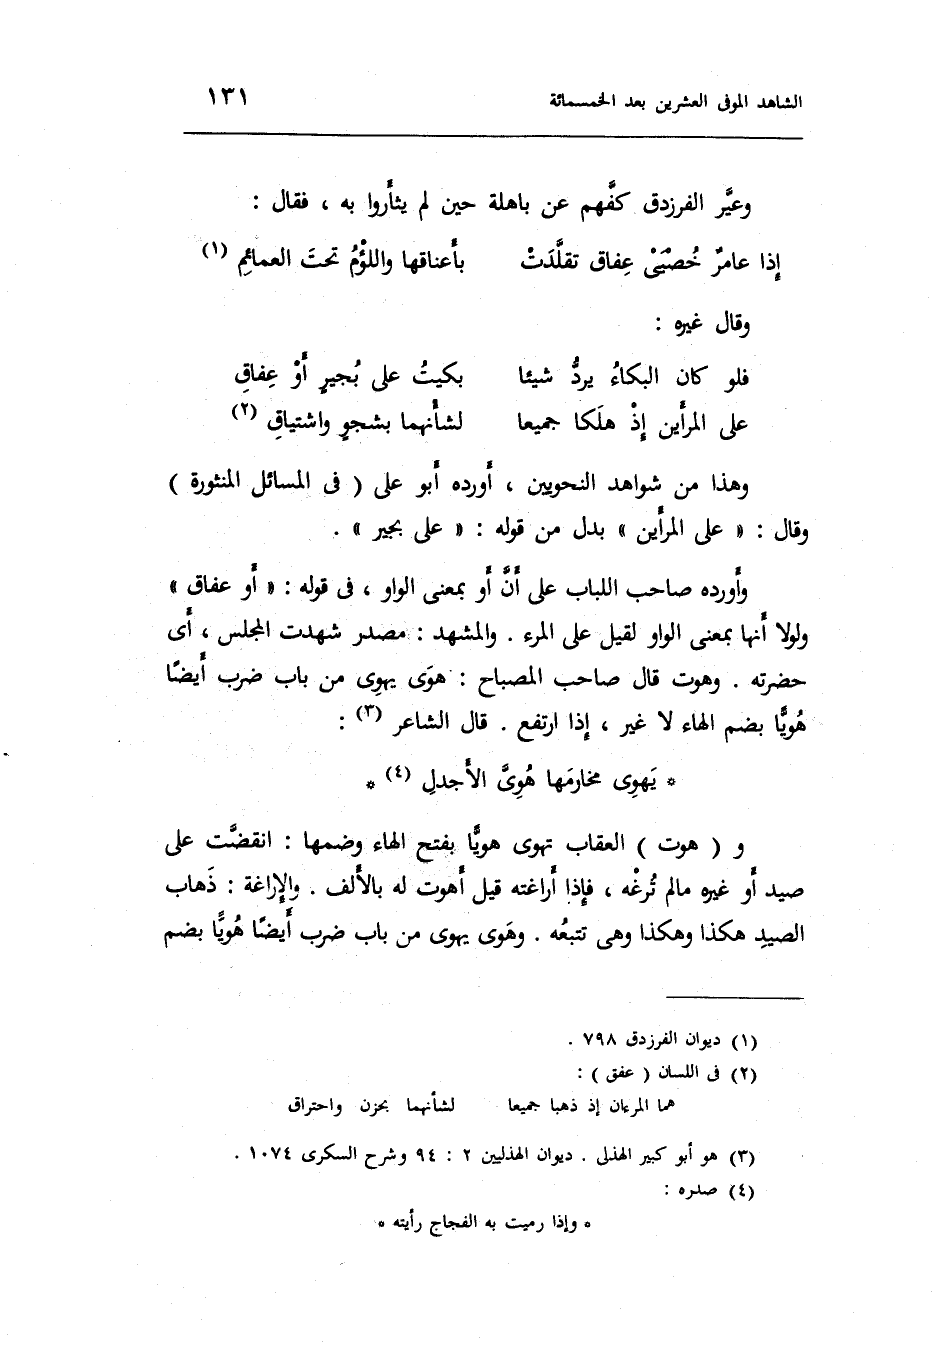 الشاهد الموفى العشرين بعد الخمسمائة ١٣١
وعيَّر الفرزدق كفَّهم عن باهلة حين لم يثأَروا به ، فقال :
إذا عامرٌ خُصْيَىْ عِفاق تقلَّدَتْ بأَعناقها واللؤْمُ تحتَ العمائمِ (١)
وقال غيره :
فلو كان البكاءُ يردُّ شيئا بكيتُ على بُجيرٍ أَوْ عِفاقِ
على المرأَين إِذْ هلَكا جميعا لشأْنهما بشجوٍ واشتياقِ (٢)
وهذا من شواهد النحويين ، أَورده أَبو على ( فى المسائل المنثورة )
وقال : « على المرأَين » بدل من قوله : « على بجير » .
وأَورده صاحب اللباب على أَنَّ أَو بمعنى الواو ، فى قوله : « أَو عفاق »
ولولا أَنها بمعنى الواو لقيل على المرء . والمشهد : مصدر شهدت المجلس ، أَى
حضرته . وهوت قال صاحب المصباح : هوَى يهوِى من باب ضرب أَيضًا
هُويًّا بضم الهاء لا غير ، إِذا ارتفع . قال الشاعر (٣) :
* يَهوِى مخارمَها هُوِىَّ الأَجدلِ (٤) *
و ( هوت ) العقاب تهوى هويًّا بفتح الهاء وضمها : انقضَّت على
صيد أَو غيره مالم تُرغْه ، فإِذا أَراغته قيل أَهوت له بالأَلف . والإِراغة : ذَهاب
الصيدِ هكذا وهكذا وهى تتبعُه . وهَوى يهوى من باب ضرب أَيضًا هُويًّا بضم
(١) ديوان الفرزدق ٧٩٨ .
(٢) فى اللسان ( عفق ) :
هما المرءان إذ ذهبا جميعا لشأنهما بحزن واحتراق
(٣) هو أبو كبير الهذلى . ديوان الهذليين ٢ : ٩٤ وشرح السكرى ١٠٧٤ .
(٤) صدره :
* وإذا رميت به الفجاج رأيته *